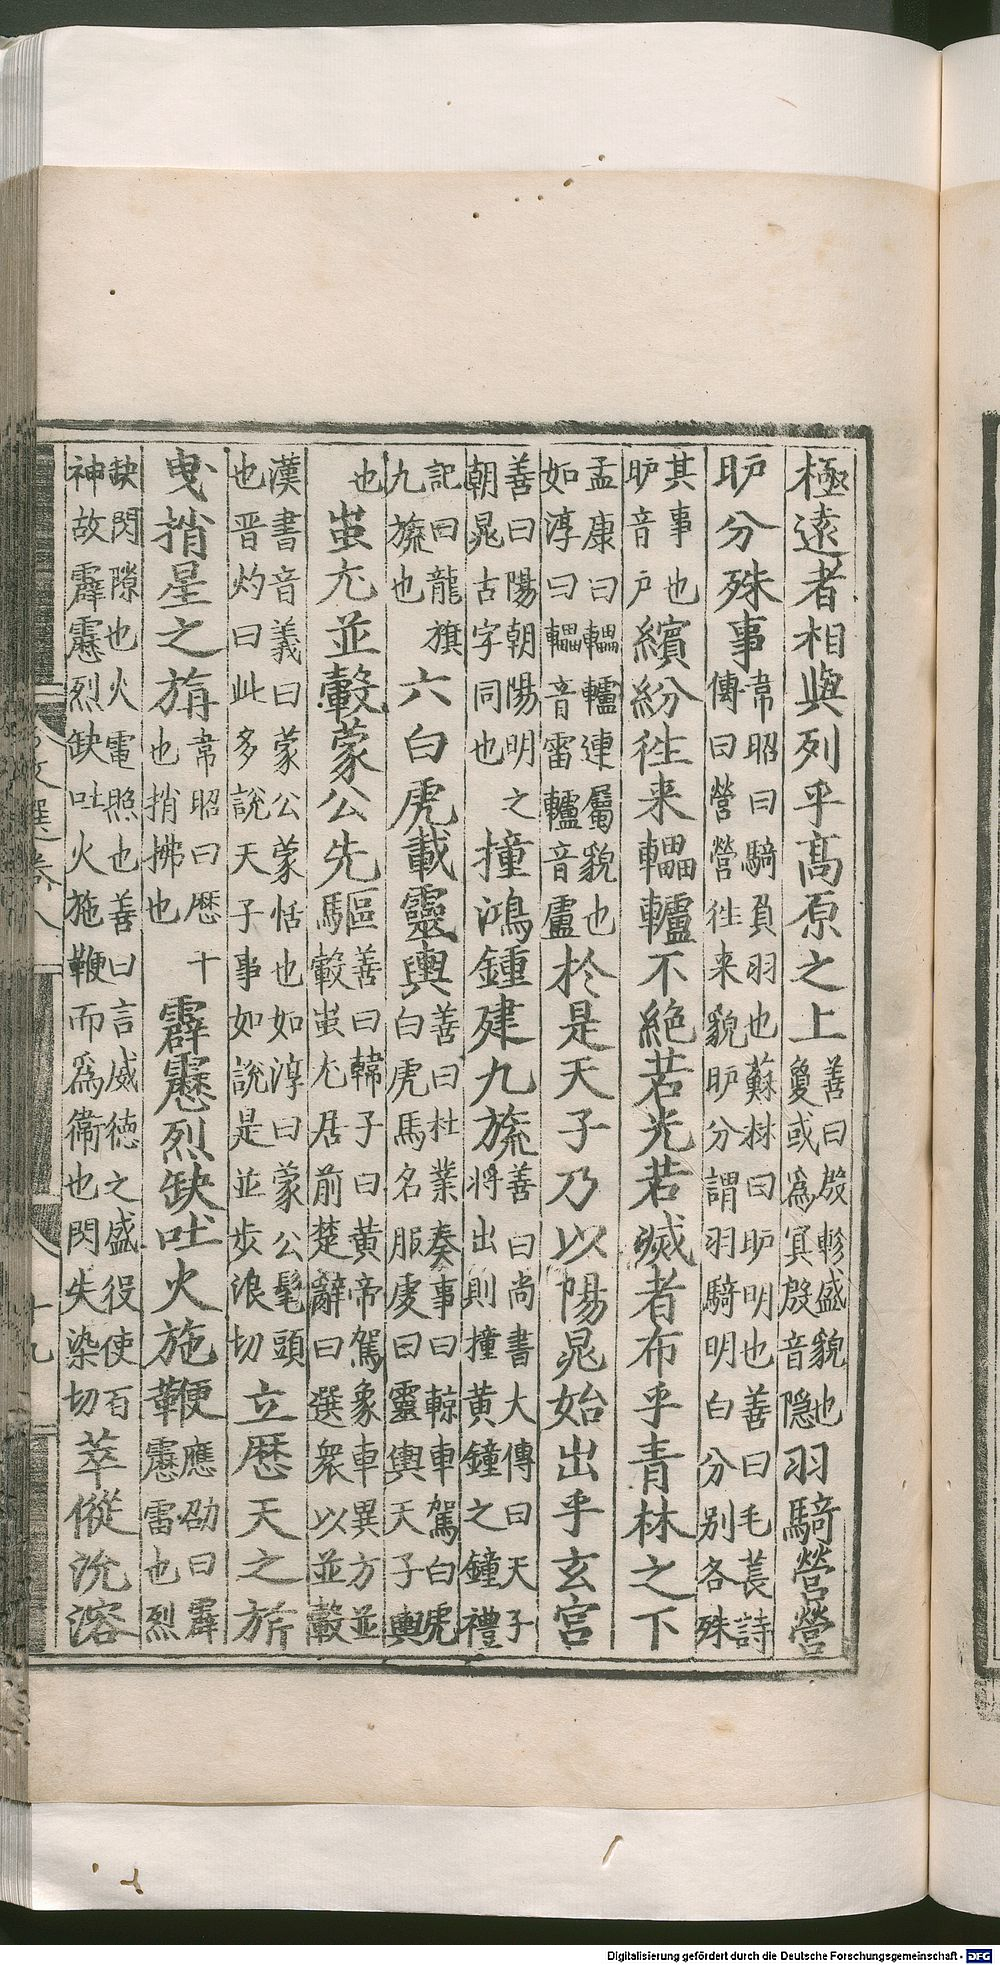 極遠者相與列乎髙原之上善曰殷軫盛貌也敻或為寘殷音隱羽騎營營
昈分殊事韋昭曰騎負羽也蘇林曰昈明也善曰毛萇詩傳曰營營徃来貌昈分謂羽騎明白分别各殊
其事也昈音戸繽紛徃来轠轤不絶若光若滅者布乎青林之下
孟康曰轠轤連屬貌也如淳曰轠音雷轤音盧扵是天子乃以陽晁始出乎玄宫
善曰陽朝陽明之朝晁古字同也撞鴻鍾建九旒善曰尚書大傳曰天子將出則撞黄鐘之鐘禮
記曰龍旗九旒也六白虎載靈輿善曰杜業奏事曰輬車駕白虎白虎馬名服虔曰靈輿天子輿
也蚩尤並轂蒙公先驅善曰韓子曰黄帝駕象車異方並轂蚩尤居前楚辭曰選衆以並轂
漢書音義曰蒙公蒙恬也如淳曰蒙公髦頭也晋灼曰此多說天子事如說是並步浪切立厯天之旂
曳捎星之旃韋昭曰厯十也捎拂也霹靂烈缺吐火施鞭應劭曰霹靂雷也烈
缺閃隙也火電照也善曰言威徳之盛役使百神故霹靂烈缺吐火施鞭而爲衞也閃失染切萃傱沇溶
文選卷八
十九
Digitalisierung gefördert durch die Deutsche Forschungsgemeinschaft - DFG